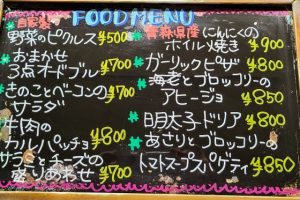 FOOD MENU
自家製
野菜のピクルス ¥500
おまかせ
3点オードブル ¥700
きのことベーコンの
サラダ ¥700
牛肉の
カルパッチョ ¥800
サラミとチーズの
盛りあわせ ¥700
青森県産にんにくの
ホイル焼き ¥900
ガーリックピザ ¥800
海老とブロッコリーの
アヒージョ ¥850
明太子ドリア ¥800
あさりとブロッコリーの
トマトスープスパゲティ ¥850